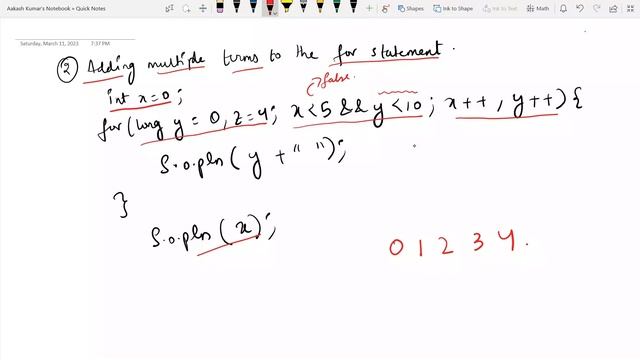 Aakash Kumar's Notebook » Quick Notes
Shapes Ink to Shape Ink to Text Math
Saturday, March 11, 2023 7:37 PM
② Adding multiple terms to the for statement.
int x=0;
false.
for (long y = 0, z=4; x<5 && y<10; x++, y++) {
S.o.pln( y + " ");
}
S.o.pln(x);
0 1 2 3 4.